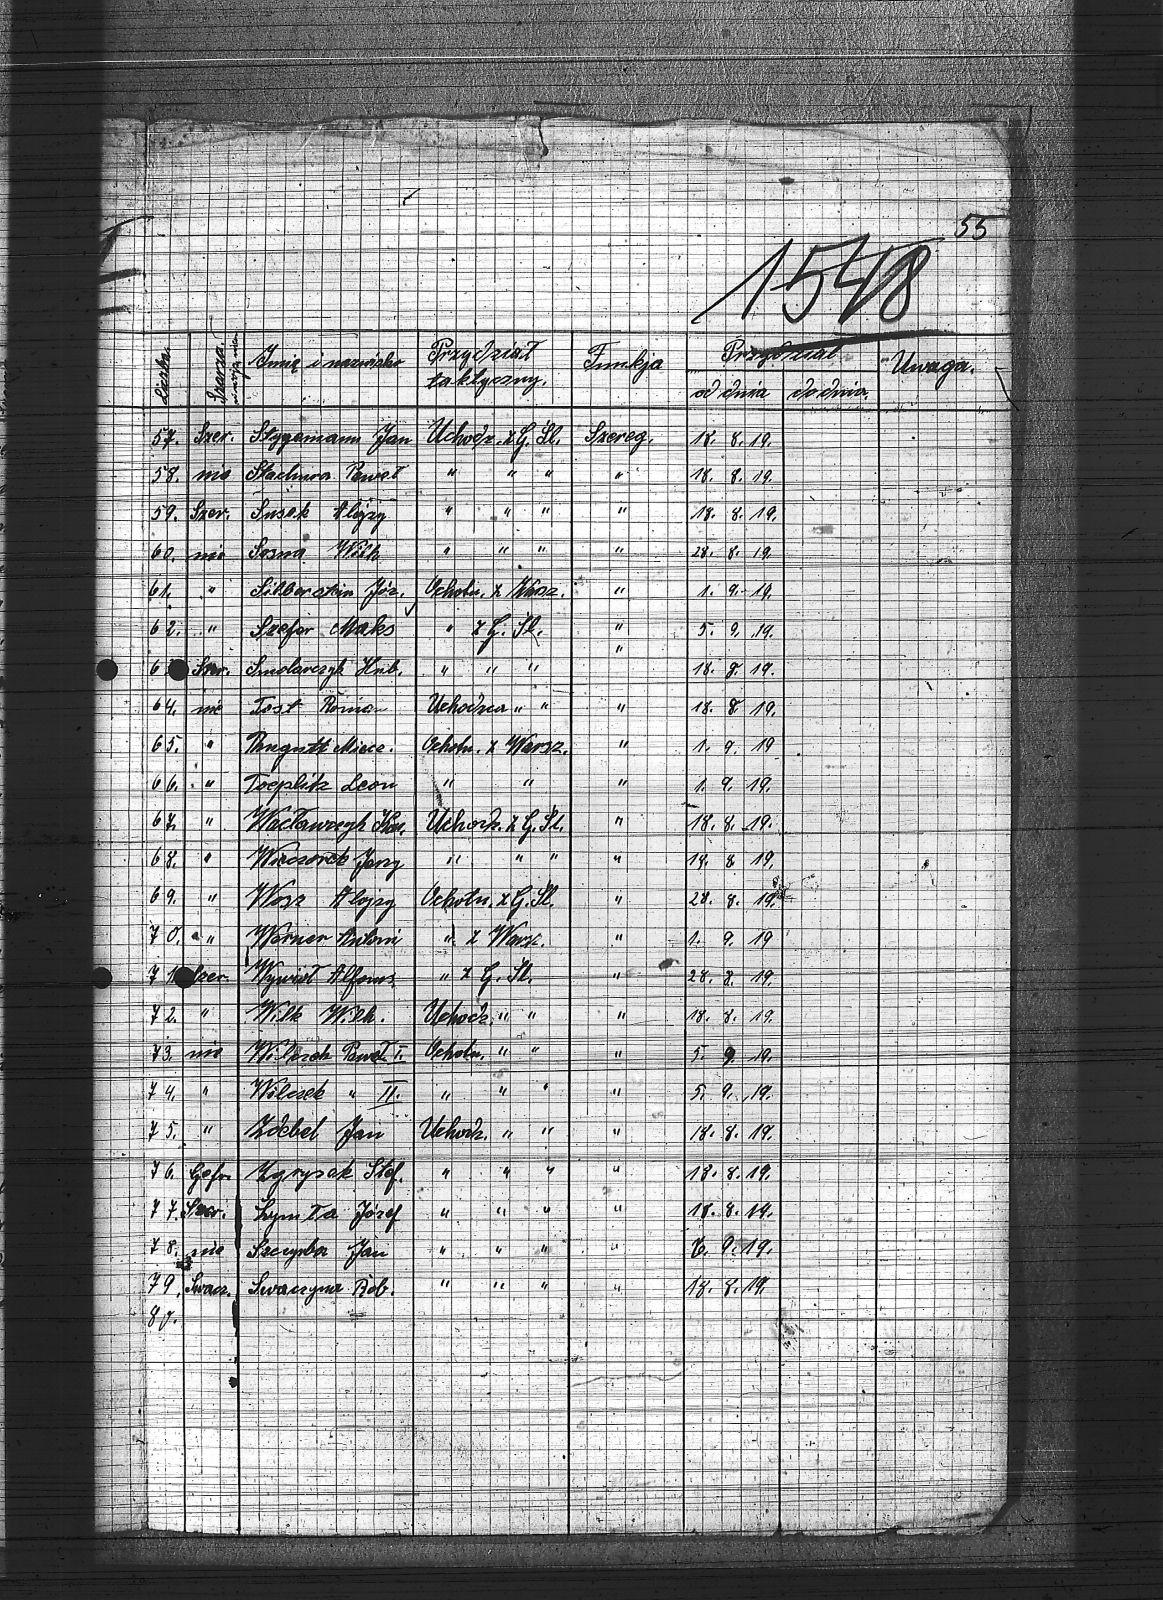 55
1548
Liczba. Szarża. Imię i nazwisko Przydział taktyczny. Funkcja Przydział od dnia do dnia Uwaga.
57. Szer. Stygemann Jan Uchodz. z G. Śl. Szereg. 18. 8. 19.
58. nie Stachura Paweł " " " " 18. 8. 19.
59. Szer. Susek Alojzy " " " " 18. 8. 19.
60. nie Sosna Wilh " " " " 28. 8. 19.
61. " Silberstein Józ. Ochotn. z Warsz. " 1. 9. 19.
62. " Szefer Maks " z G. Śl. " 5. 9. 19.
Szer. Smolarczyk Hub. " " " " 18. 8. 19.
64. nie Test Roman Uchodzca " " " 18. 8. 19.
65. " Miecz. Ochotn. z Warsz. " 1. 9. 19
66. " Toeplitz Leon " " " 1. 9. 19.
67. " Wacławczyk Uchodz. z G. Śl. " 18. 8. 19.
68. " Wieczorek Jerzy " " " " 18. 8. 19.
69. " Wosz Alojzy Ochotn. z G. Śl. " 28. 8. 19.
70. " Werner Antoni " z Warsz. " 1. 9. 19
71. Szer. Wywiół Alfons " z G. Śl. " 28. 8. 19.
72. " Wilk Wilh. Uchodz. " " " 18. 8. 19.
73. nie Wilczek Paweł I. Ochotn. " " " 5. 9. 19.
74. " Wilczek " II. " " " " 5. 9. 19.
75. " Zdebel Jan Uchodz. " " " 18. 8. 19.
76. Gefr. Zgrysek Stef. " " " " 18. 8. 19.
77. Szer. Żymła Józef " " " " 18. 8. 19.
78. nie Szczyrba Jan " " " " 9. 19.
79. Swacz. Swaczyna Rob. " " " " 18. 8. 19.
80.